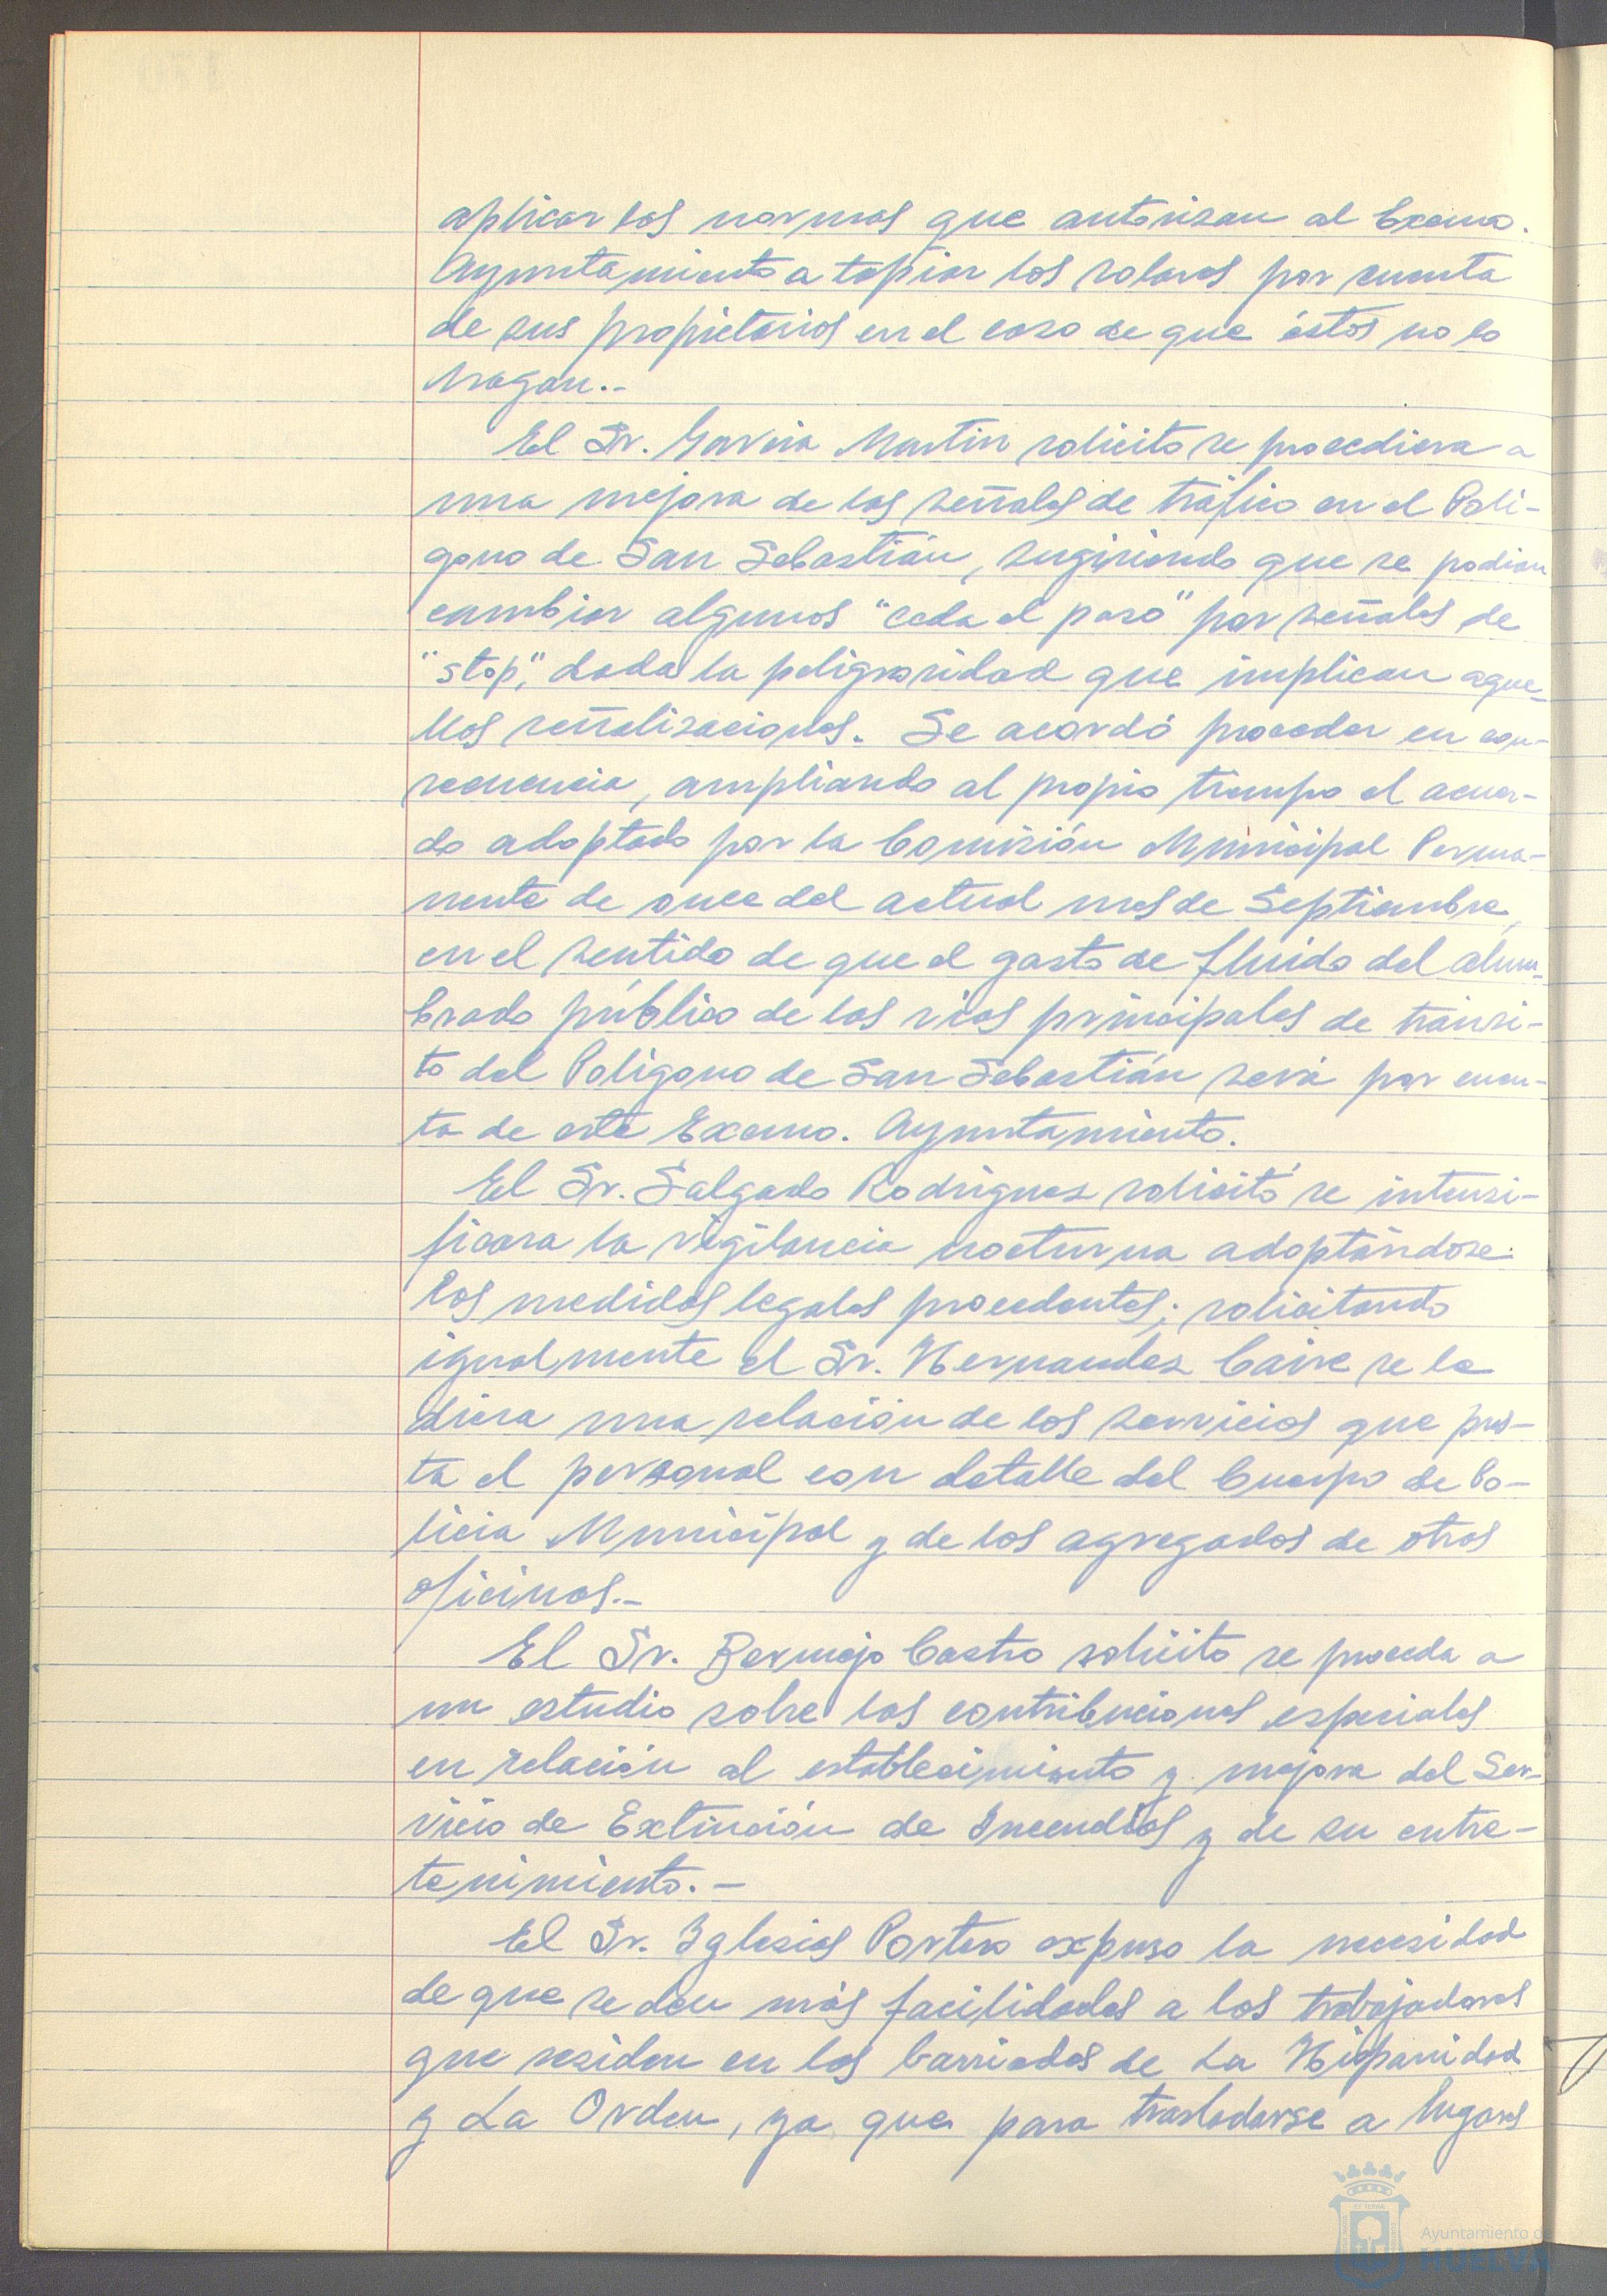 aplicar las normas que autorizan al Excmo.
Ayuntamiento a tapiar los solares por cuenta
de sus propietarios en el caso de que éstos no lo
hagan.-
El Sr. García Martin solicito se procediera a
una mejora de las señales de tráfico en el Polí-
gono de San Sebastián, sugiriendo que se podian
cambiar algunos "ceda el paso" por señales de
"stop", dada la peligrosidad que implican aque-
llas señalizaciones. Se acordó proceder en con-
secuencia, ampliando al propio tiempo el acuer-
do adoptado por la Comisión Municipal Perma-
nente de once del actual mes de Septiembre,
en el sentido de que el gasto de fluido del alum-
brado público de las vias principales de tránsi-
to del Poligono de San Sebastián será por cuen-
ta de este Excmo. Ayuntamiento.
El Sr. Salgado Rodriguez solicitó se intensi-
ficara la vigilancia nocturna adoptándose
las medidas legales procedentes; solicitando
igualmente el Sr. Hernandez Caire se le
diera una relación de los servicios que pres-
ta el personal con detalle del Cuerpo de Po-
licia Municipal y de los agregados de otras
oficinas.-
El Sr. Bermejo Castro solicito se proceda a
un estudio sobre las contribuciones especiales
en relación al establecimiento y mejora del Ser-
vicio de Extinción de Incendios y de su entre-
tenimiento.-
El Sr. Iglesias Portero expuso la necesidad
de que se den más facilidades a los trabajadores
que residen en las barriadas de La Hispanidad
y La Orden, ya que para trasladarse a lugares
Ayuntamiento de
HUELVA